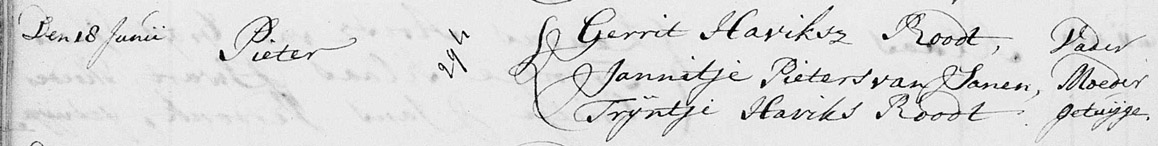 Den 18 Junii Pieter Gerrit Haviksz Roodt, Vader
Jannitje Pieters van Sanen, Moeder
Trÿntje Haviks Roodt getuijge.